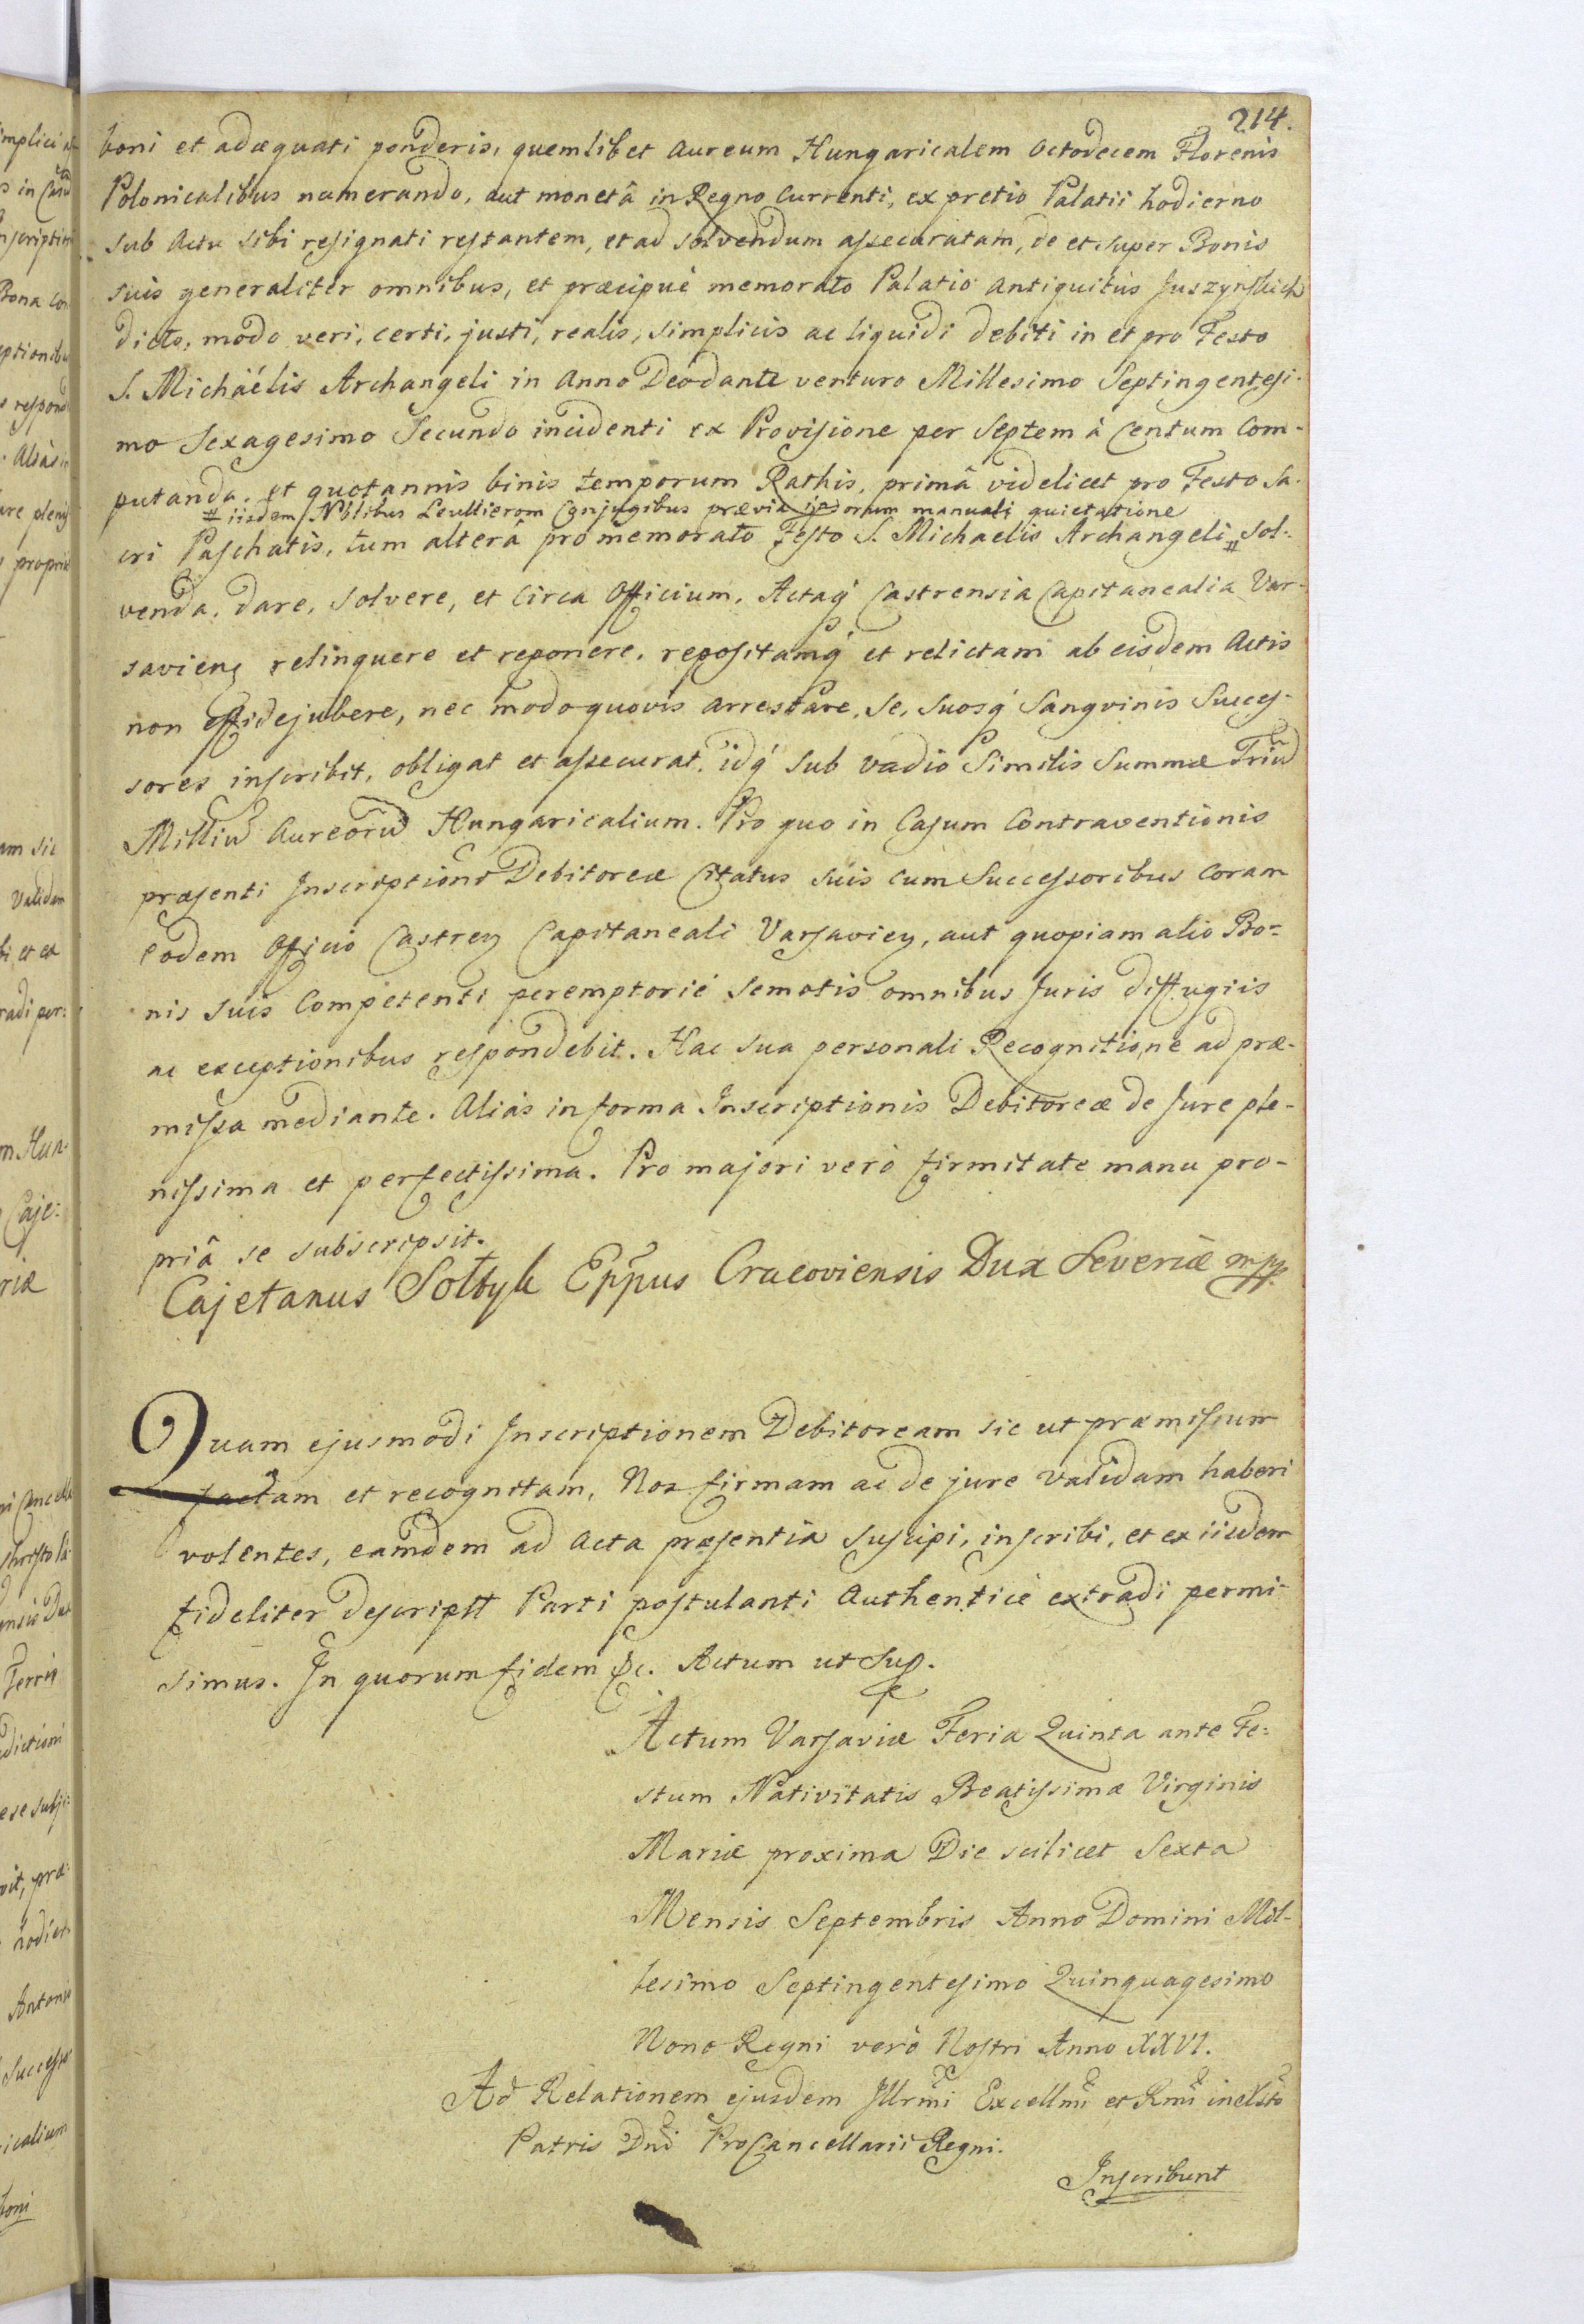 214.
boni et adæquati ponderis, quemlibet Aureum Hungaricalem Octodecem Florenis
Polonicalibus numerando, aut monetâ in Regno Currenti, ex pretio Palatii hodierno
sub Actu sibi resignati restantem, et ad solvendum assecuratam, de et super Bonis
suis generaliter omnibus, et præcipuè memorato Palatio Antiquitùs Juszynskich
dicto, modo veri, certi, justi, realis, simplicis ac liquidi debiti in et pro Festo
S. Michaëlis Archangeli in Anno Deo dante venturo Millesimo Septingentesi-
mo Sexagesimo Secundo incidenti ex Provisione per Septem à Centum Com-
putanda, et quotannis binis temporum Rathis, primâ videlicet pro Festo Sa-
# iisdem Nblibus Leullierom Conjugibus prævia manuali quietatione
cri Paschatis, tum alterâ pro memorato Festo S. Michaelis Archangeli # sol-
venda, dare, solvere, et Circa Officium, Actaq́ Castrensia Capitanealia Var-
savien relinquere et reponere, repositamq́ et relictam ab eisdem Actis
non effidejubere, nec modo quovis arrestare, se, suosq́ Sangvinis Succes-
sores inscribit, obligat et assecurat, idq́ sub vadio Similis Summæ Triũ
Milliũ Aureorũ Hungaricalium. Pro quo in Casum Contraventionis
præsenti Inscriptioni Debitoreæ Citatus suis cum Successoribus Coram
eodem Officio Castren Capitaneali Varsavien, aut quopiam alio Bo-
nis suis Competenti peremptoriè semotis omnibus Juris diffugiis
ac exceptionibus respondebit. Hac sua personali Recognitione ad præ-
missa mediante. Aliàs in forma Inscriptionis Debitoreæ de Jure ple-
nissima et perfectissima. Pro majori verò firmitate manu pro-
priâ se subscripsit.
Cajetanus Sołtyk Eppus Cracoviensis Dux Severiæ mpp.
Quam ejusmodi Inscriptionem Debitoream sic ut præmissum
factam et recognitam, Nos firmam ac de jure validam haberi
volentes, eamdem ad Acta præsentia suscipi, inscribi, et ex iisdem
fideliter descriptt Parti postulanti Authenticè extradi permi-
simus. In quorum fidem &c. Actum ut sup.
Actum Varsaviæ Feria Quinta ante Fe-
stum Nativitatis Beatissimæ Virginis
Mariæ proxima Die scilicet Sexta
Mensis Septembris Anno Domini Mil-
lesimo Septingentesimo Quinquagesimo
Nono Regni verò Nostri Anno XXVI.
Ad Relationem ejusdem Illrmi Excellmi et Rmi in Xsto
Patris Dni ProCancellarii Regni.
Inscribunt